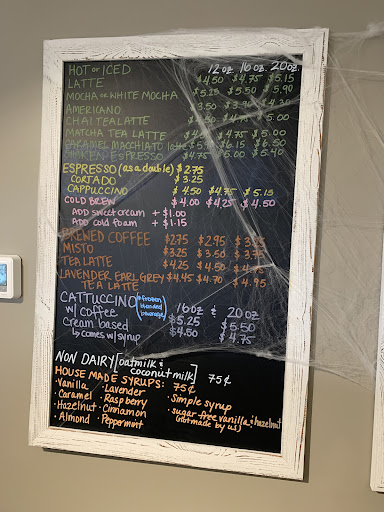 HOT or ICED 12 oz. 16 oz. 20 oz.
LATTE $4.50 $4.75 $5.15
MOCHA OR WHITE MOCHA $5.15 $5.50 $5.90
AMERICANO 3.50 $3.90 $4.30
CHAI TEA LATTE $4.75 5.00
MATCHA TEA LATTE $4.75 $5.00
CARAMEL MACCHIATO $6.15 $6.50
ESPRESSO $4.75 $5.00 $5.40
ESPRESSO (as a double) $2.75
CORTADO $3.25
CAPPUCCINO $4.50 $4.75 $5.15
COLD BREW $4.00 $4.25 $4.50
ADD sweet cream + $1.00
ADD cold foam + $1.15
BREWED COFFEE $2.75 $2.95
MISTO $3.25 $3.50 $3.75
TEA LATTE $4.25 $4.50
LAVENDER EARL GREY $4.45 $4.70 $4.95
TEA LATTE
CATTUCCINO (*frozen blended beverage) 16 oz & 20 oz
w/ coffee $5.25 $5.50
cream based $4.50 $4.75
↳ comes w/ syrup
NON DAIRY [oatmilk & coconutmilk] 75¢
HOUSE MADE SYRUPS: 75¢
· Vanilla · Lavender · Simple syrup
· Caramel · Raspberry · sugar-free vanilla & hazelnut
· Hazelnut · Cinnamon (not made by us)
· Almond · Peppermint